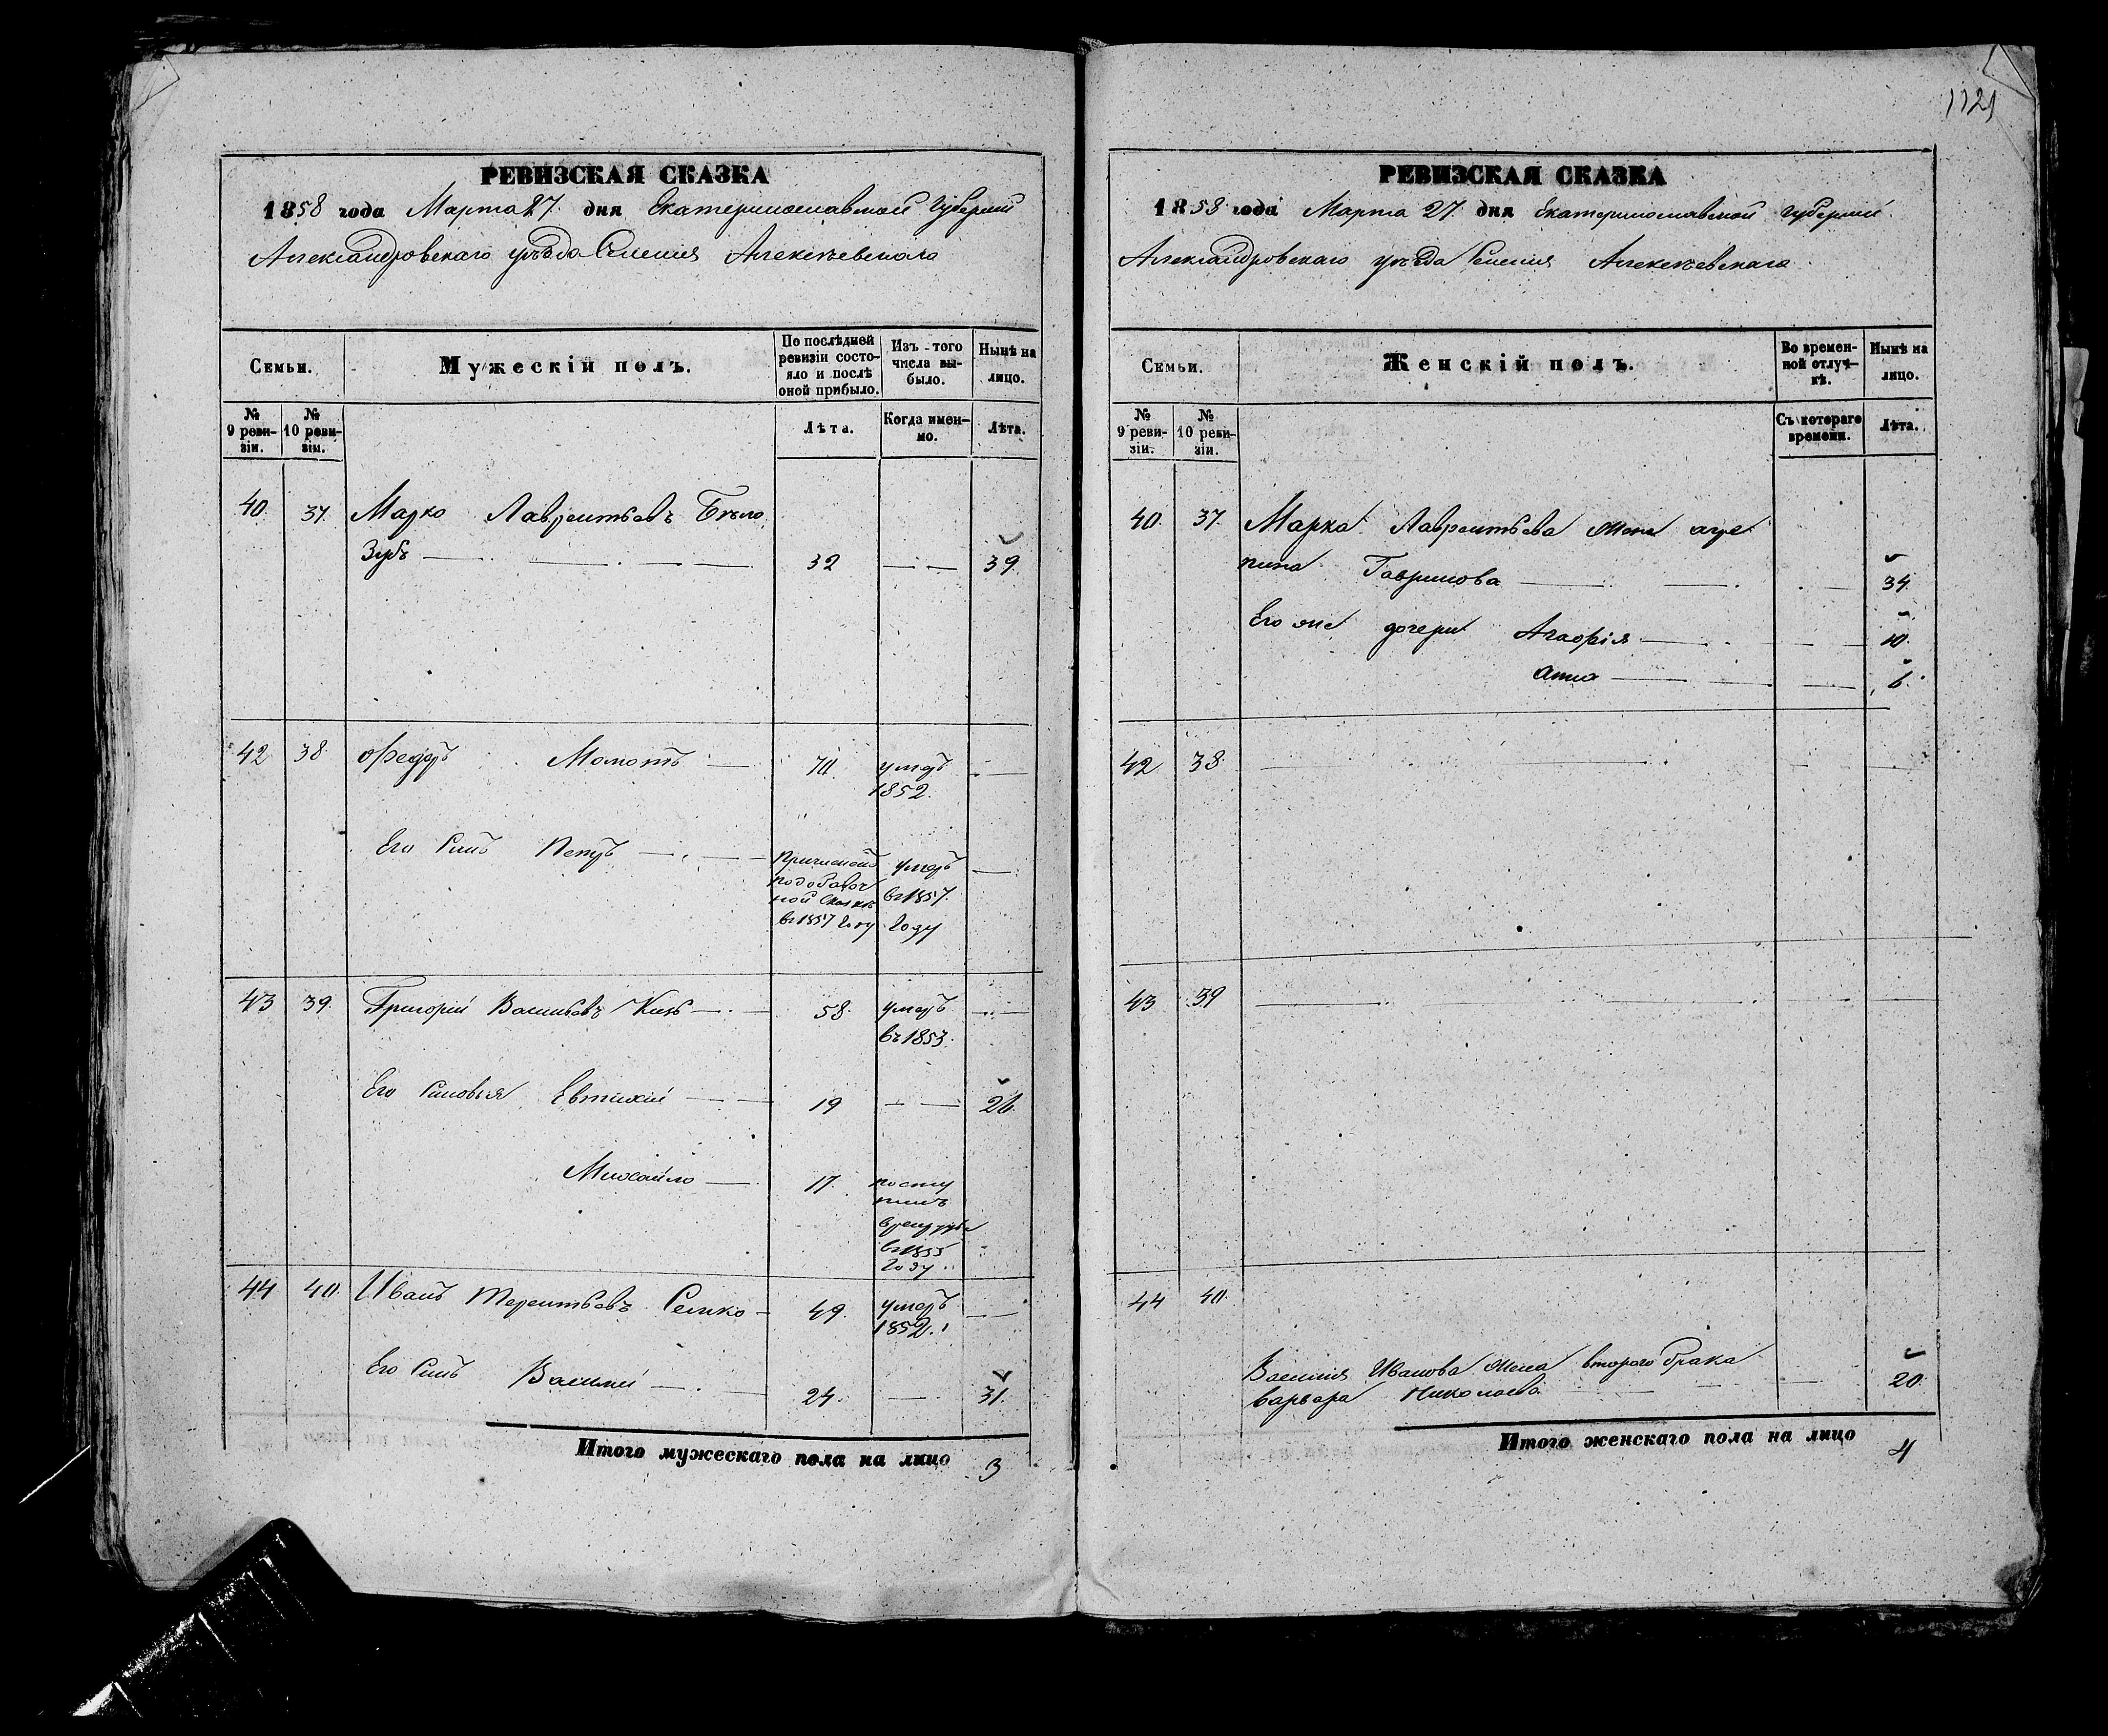 1121
РЕВИЗСКАЯ СКАЗКА
1858 года Марта 27 дня Екатеринославской Губерніи
Александровскаго уѣзда Селенія Алексѣевскаго
Семьи.
Мужескій полъ.
По послѣдней ревизіи состояло и послѣ оной прибыло.
Изъ того числа выбыло.
Нынѣ на лицо.
№ 9 ревизіи.
№ 10 ревизіи.
Лѣта.
Когда именно.
Лѣта.
40. 37. Марко Лаврентьевъ Бѣло
Зубъ 32 39.
42 38. Ѳедоръ Момотъ 70. умеръ
1852.
Его Сынъ Петръ
причисленъ
по добавоч
ной Сказкѣ
въ 1857 Году
умеръ
въ 1857.
Году
43 39. Григорій Васильевъ 58. умеръ
въ 1853.
Его Сыновья Евтихій 19 26
Михайло 17. посту
пилъ
в рекруты
въ 1855
Году
44 40. Иванъ Терентьевъ 49. умеръ
1852.
Его Сынъ Василій 24. 31.
Итого мужескаго пола на лицо 3
РЕВИЗСКАЯ СКАЗКА
1858 года Марта 27 дня Екатеринославской Губерніи
Александровскаго уѣзда Селенія Алексѣевскаго
Семьи.
Женскій полъ.
Во временной отлучкѣ.
Нынѣ на лицо.
№ 9 ревизіи.
№ 10 ревизіи.
Съ котораго времени.
Лѣта.
40. 37. Марка Лаврентьева жена агре
пина Гаврилова 34.
Его же дочери Агафія 10.
Анна 6.
42 38.
43 39
44 40.
Василія Иванова жена втораго брака
варвара Николаева 20.
Итого женскаго пола на лицо 4